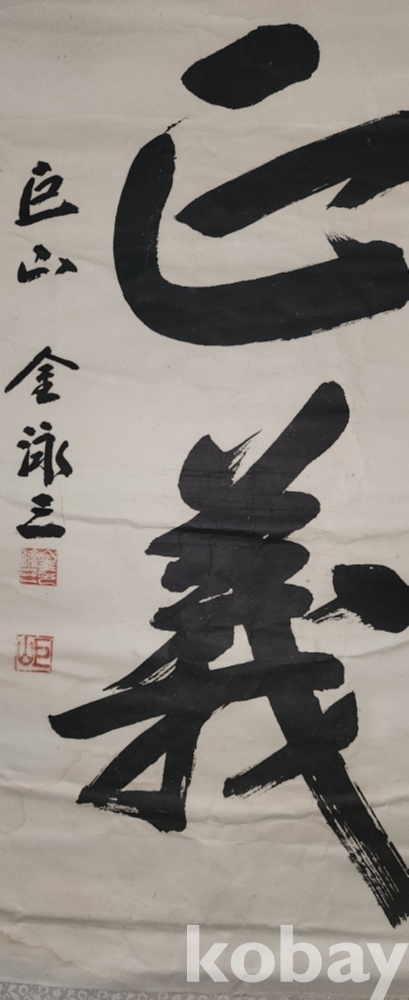 正義
巨山 金泳三
巨山
kobay